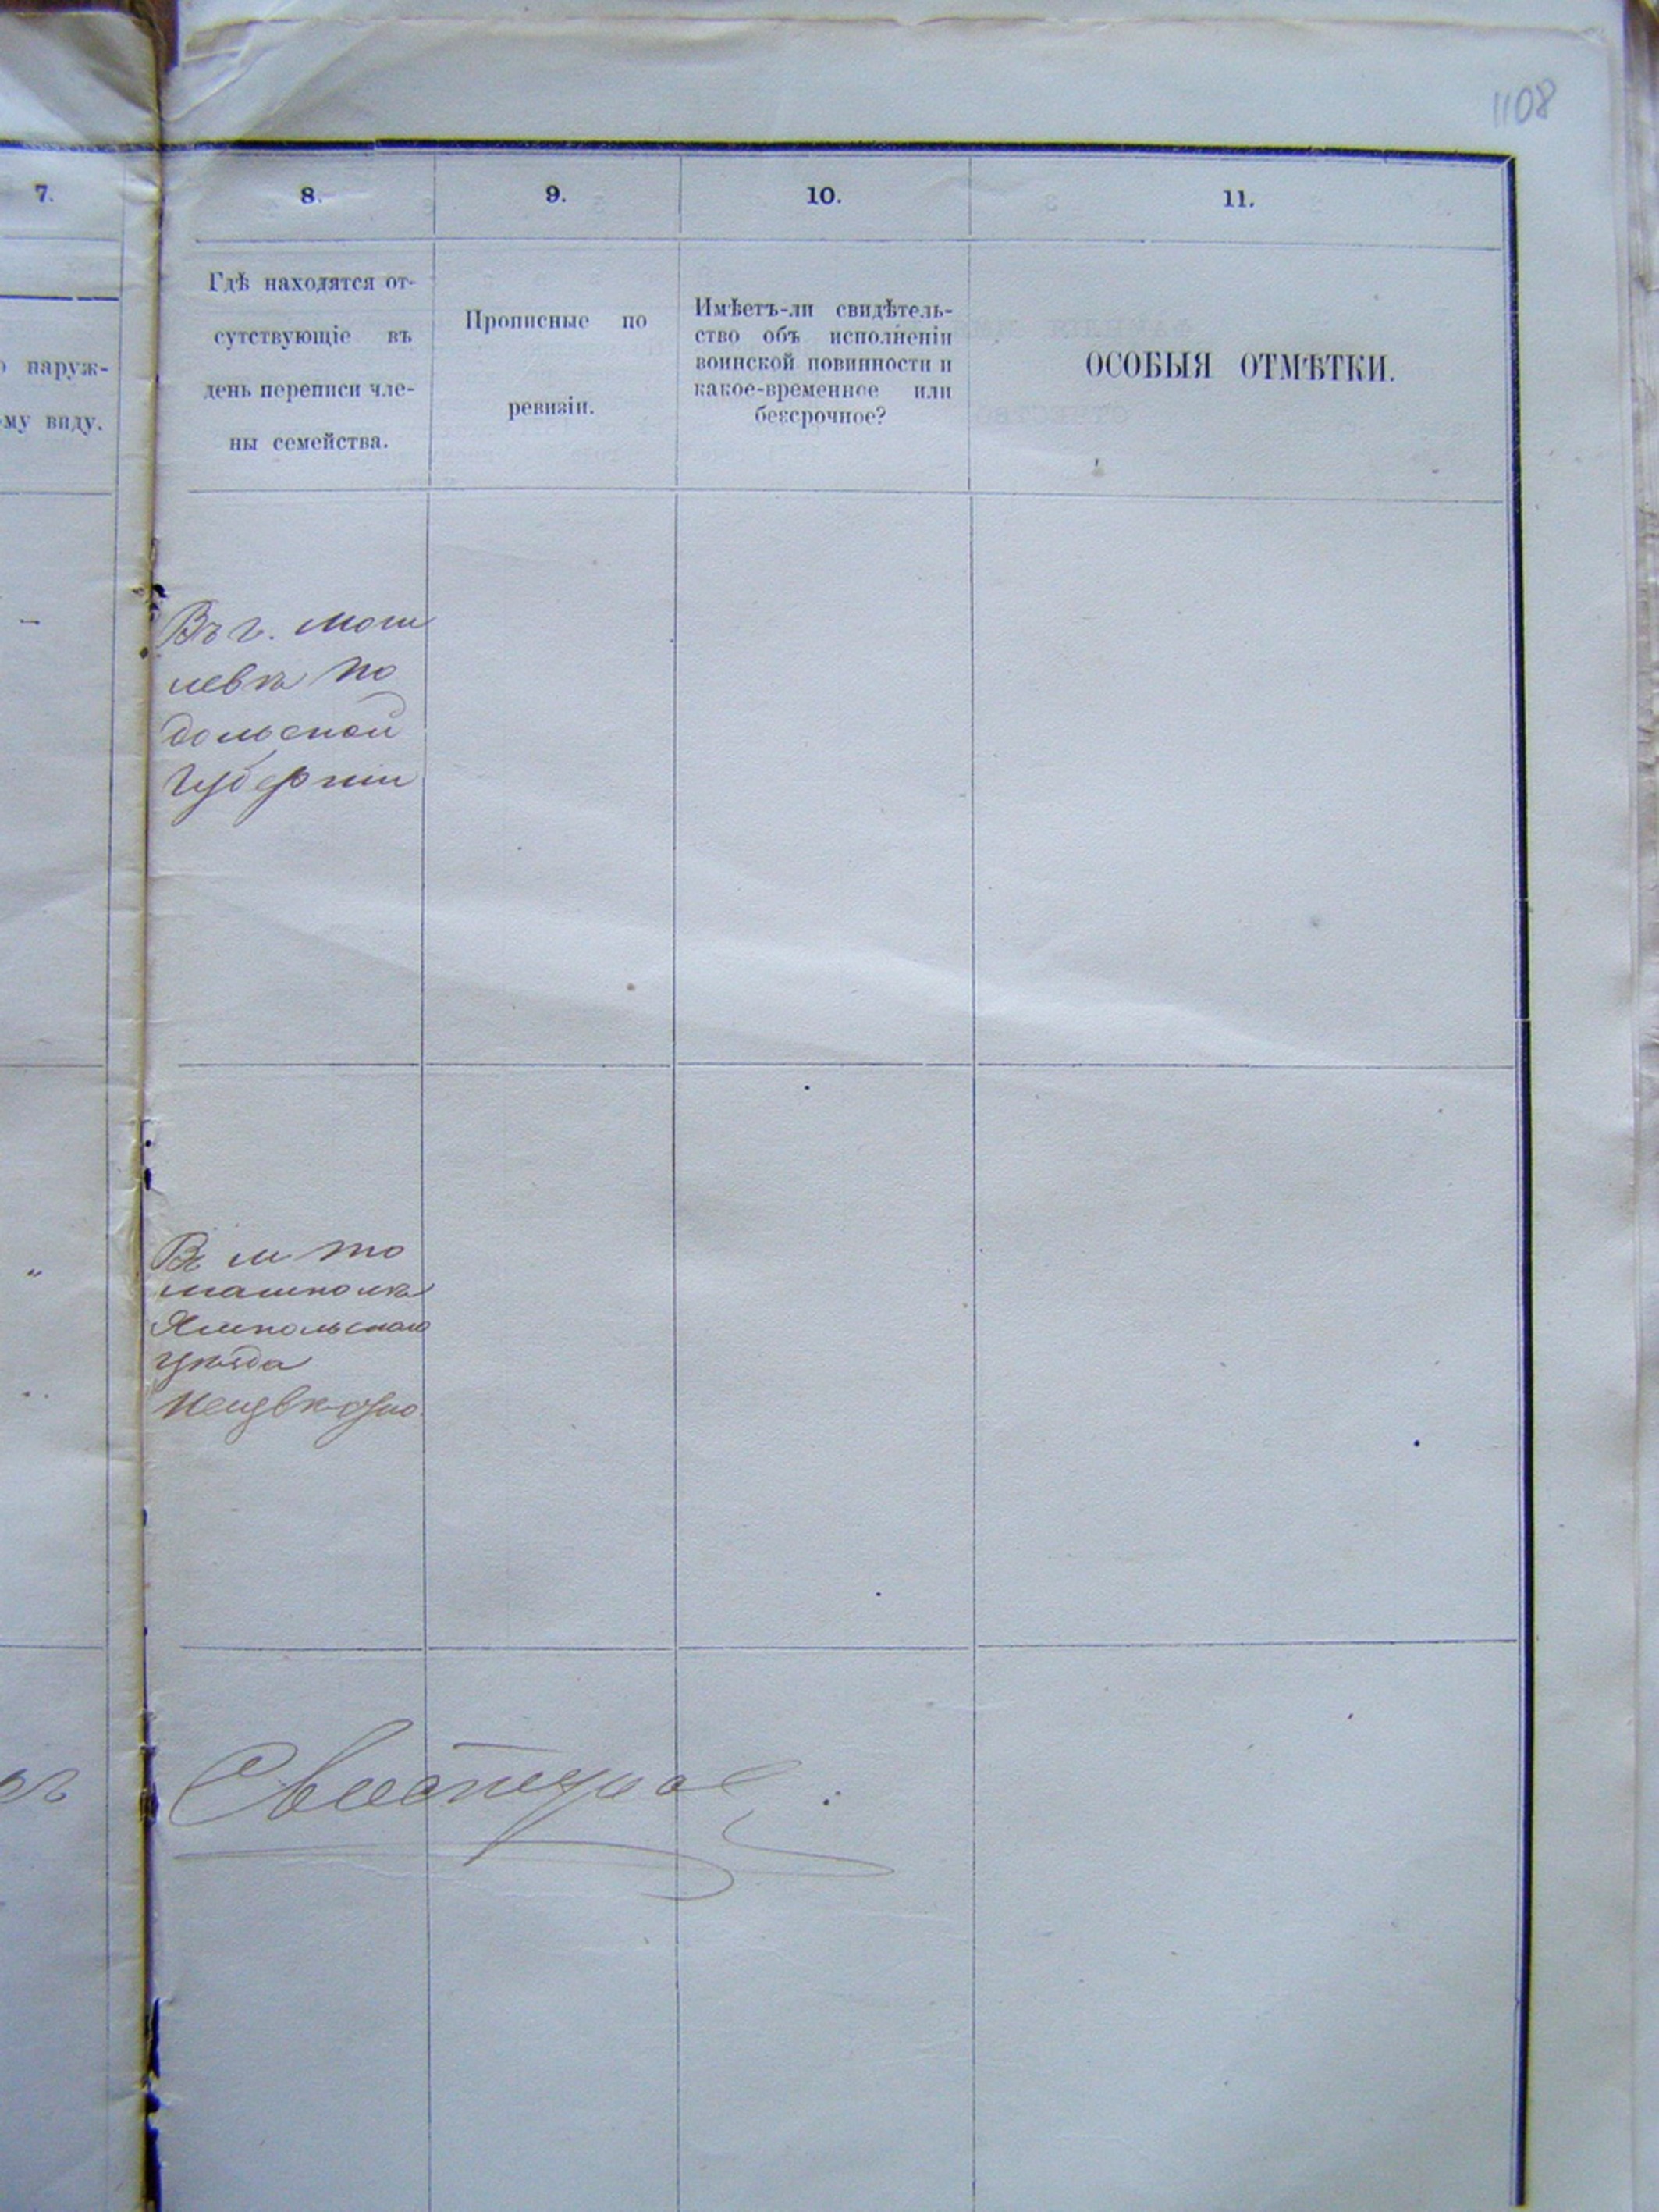 1108
7.
8.
9.
10.
11.
наруж-
му виду.
Гдѣ находятся от-
сутствующіе въ
день переписи чле-
ны семейства.
Прописные по
ревизіи.
Имѣетъ-ли свидѣтель-
ство объ исполненіи
воинской повинности и
какое-временное или
безсрочное?
ОСОБЫЯ ОТМѢТКИ.
Въ г. Моги
левѣ По
дольской
губерніи
Въ м то
машполѣ
Ямпольскаго
уѣзда